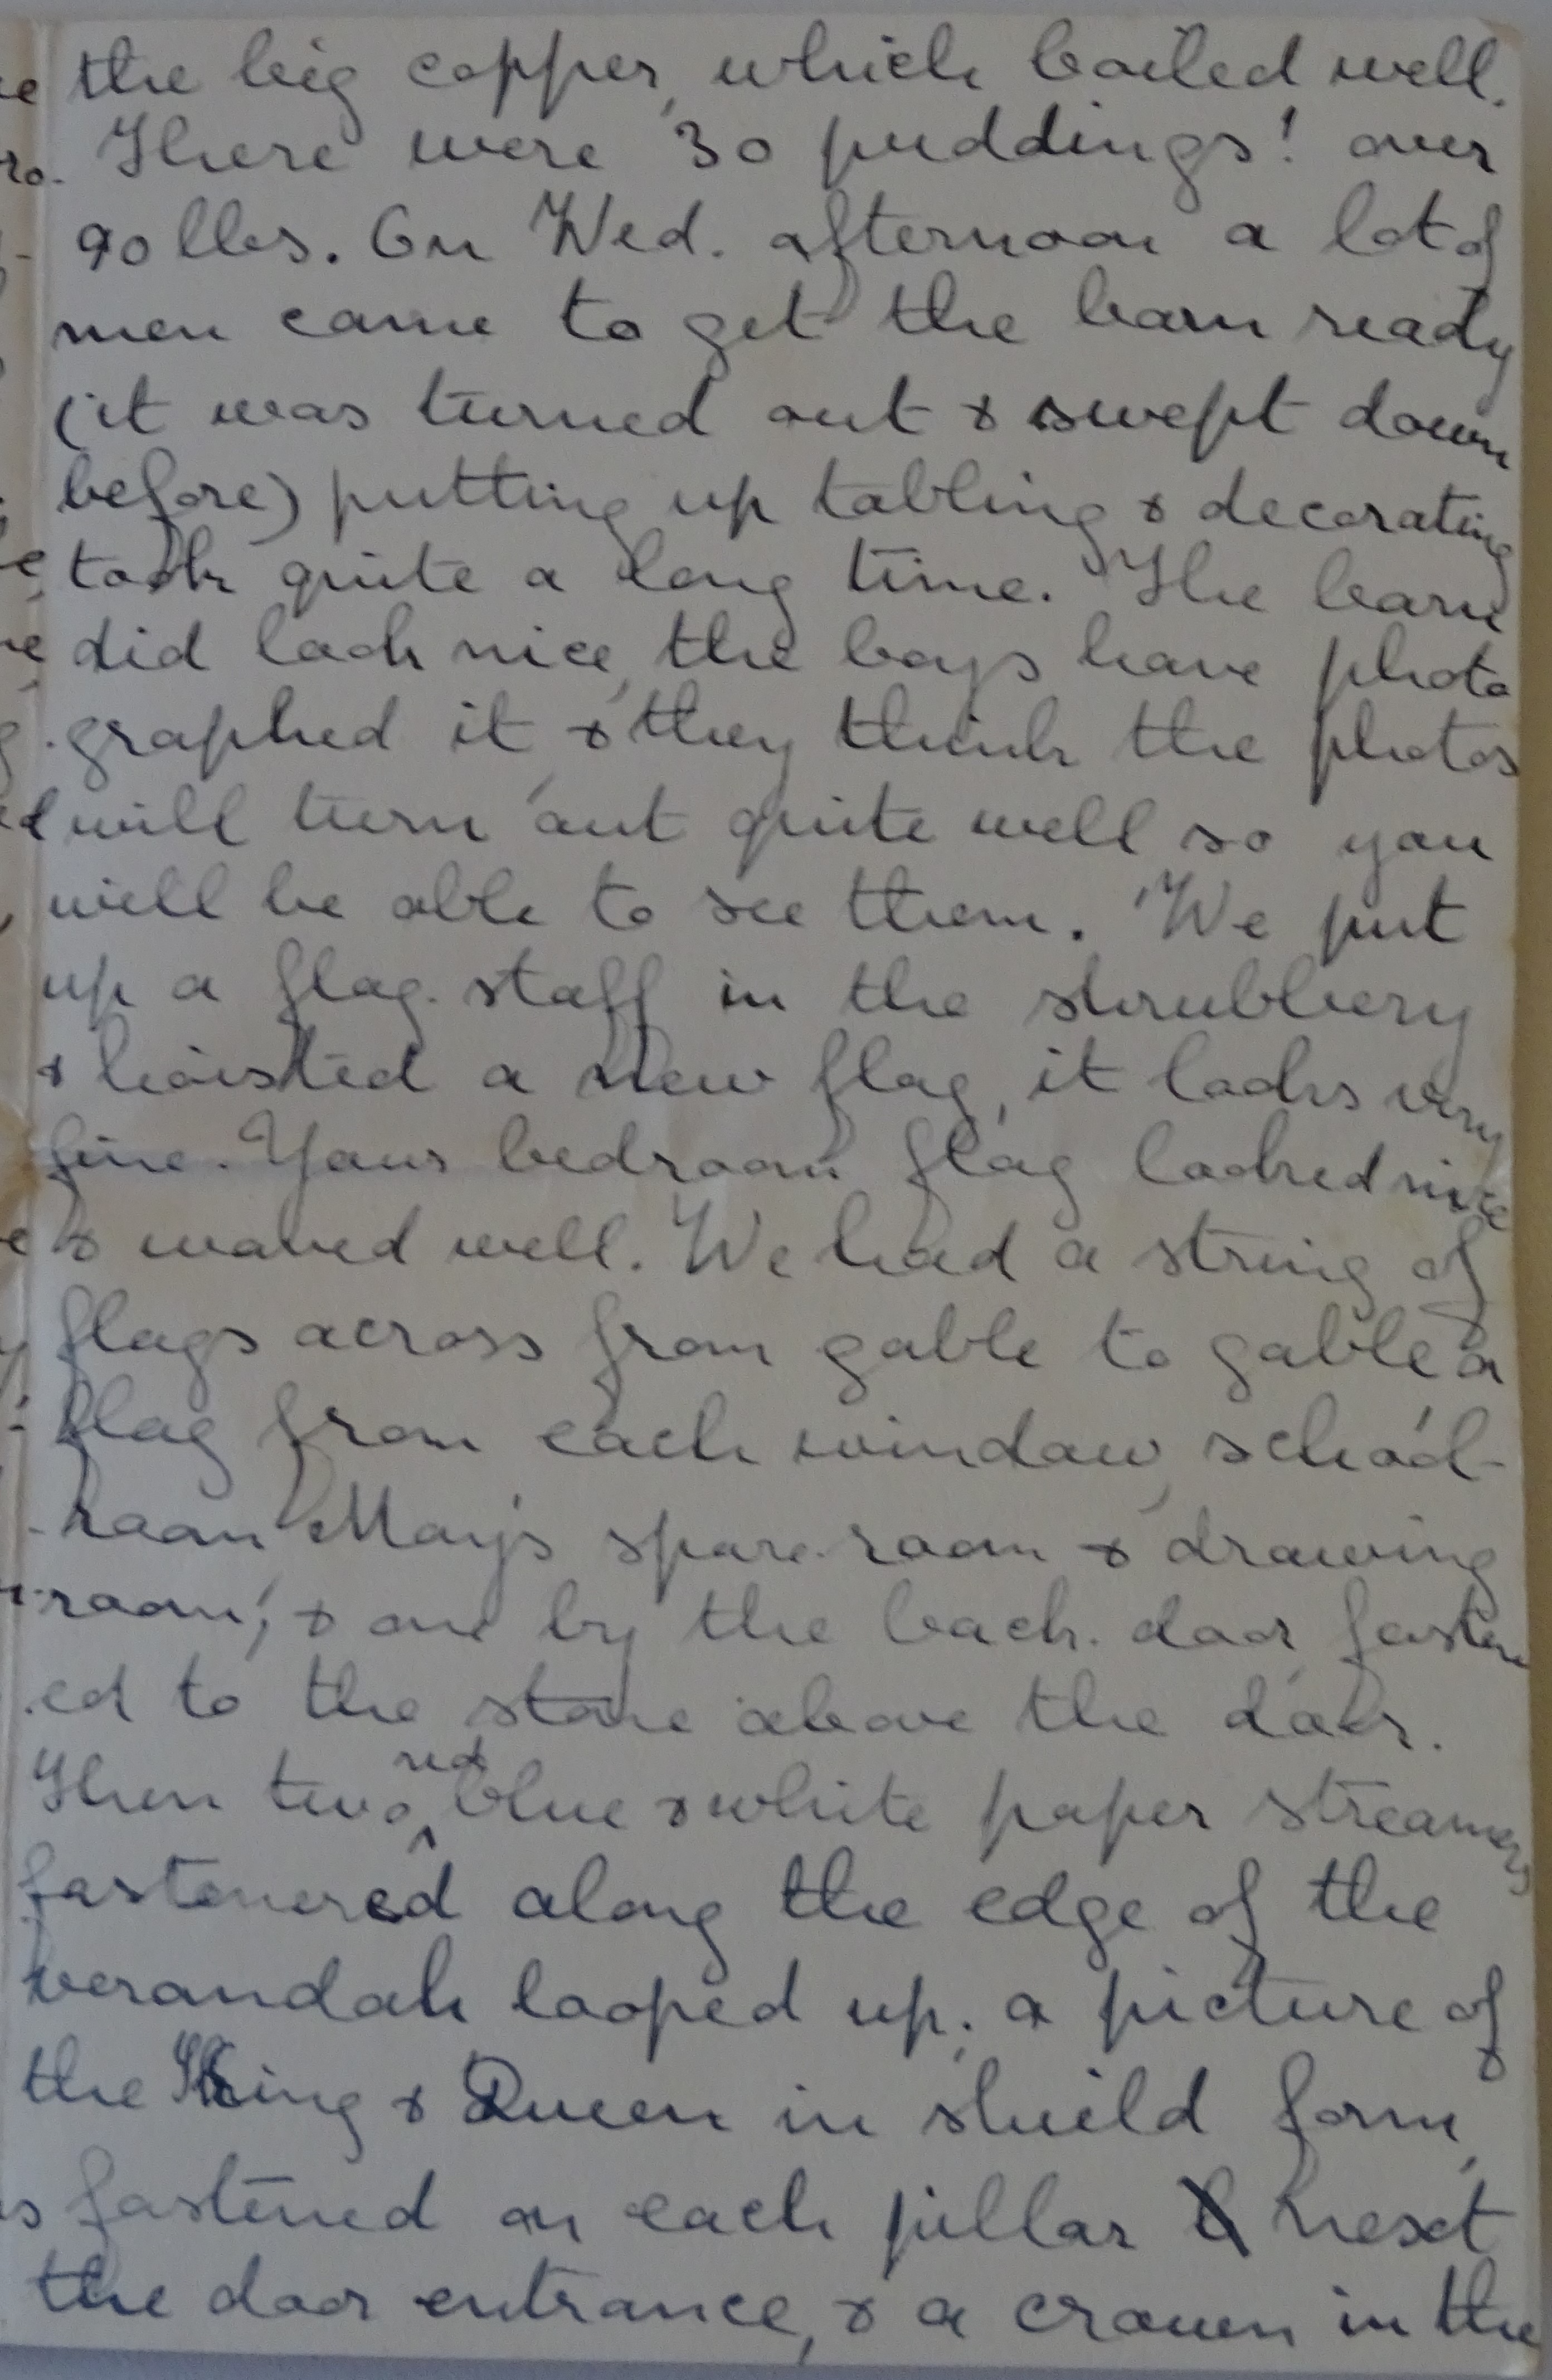 the big copper, which boiled well.
There were 30 puddings! over
90 lbs. On Wed. afternoon a lot of
men came to get the barn ready
(it was turned out & swept down
before) putting up tabling & decorating
took quite a long time. The barn
did look nice, the boys have photo
graphed it & they think the photos
will turn out quite well so you
will be able to see them. We put
up a flag-staff in the shrubbery
& hoisted a new flag, it looks very
fine. Your bedroom flag looked nice
& waved well. We had a string of
flags across from gable to gable a
flag from each window, school-
-room May's spare-room & drawing
-room, & one by the back-door fasten
-ed to the stone above the door.
Then two red blue & white paper streamers
fastenered along the edge of the
verandah looped up; a picture of
the King & Queen in shield form,
fastened on each pillar next
the door entrance, & a crown in the